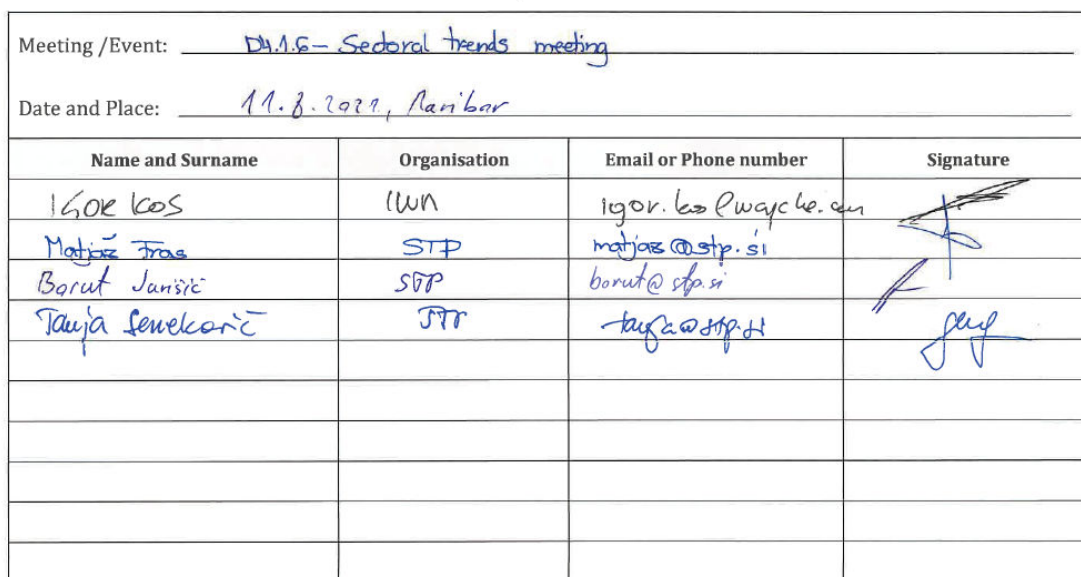 Meeting /Event: D4.1.6 - Sectoral trends meeting
Date and Place: 11. 8. 2021, Maribor
Name and Surname Organisation Email or Phone number Signature
IGOR KOS IWN
Matjaž Fras STP matjaz@stp.si
Borut Jurišić STP borut@stp.si
Tanja Senekovič STP tanja@stp.si